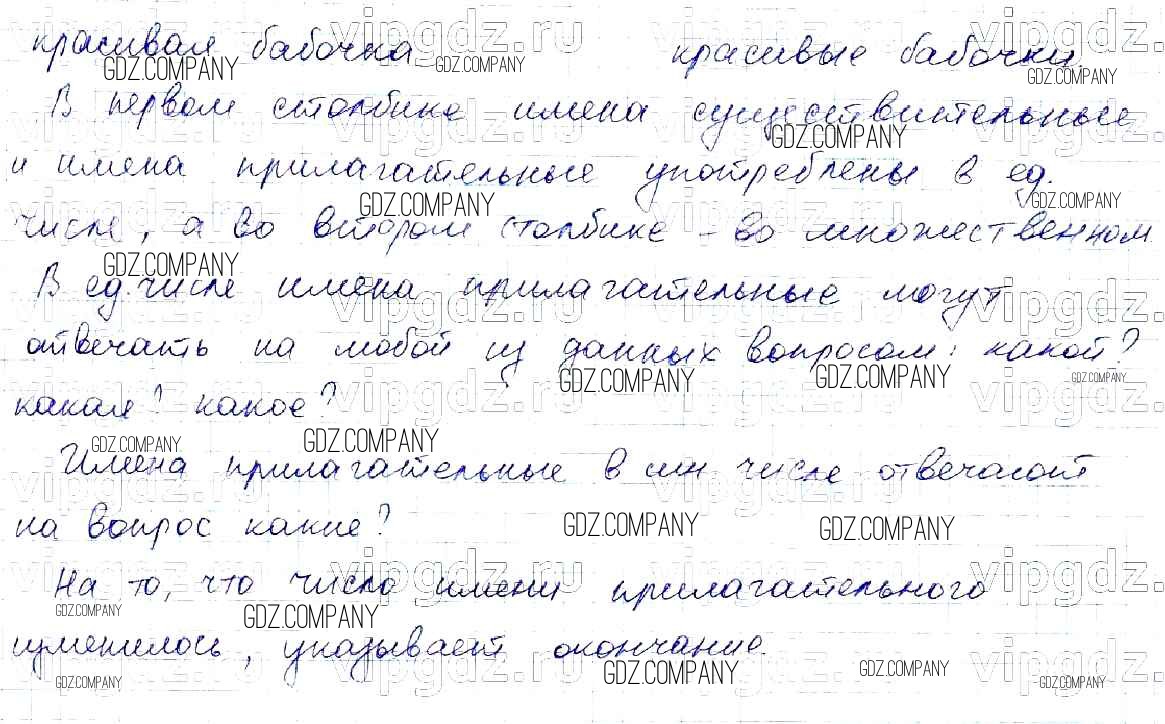 красивая бабочка красивые бабочки
В первом столбике имена существительные
и имена прилагательные употреблены в ед.
числе, а во втором столбике – во множественном
В ед. числе имена прилагательные могут
отвечать на любой из данных вопросом: какой?
какая? какое?
Имена прилагательные в мн числе отвечают
на вопрос какие?
На то, что число имени прилагательного
изменилось, указывает окончание.